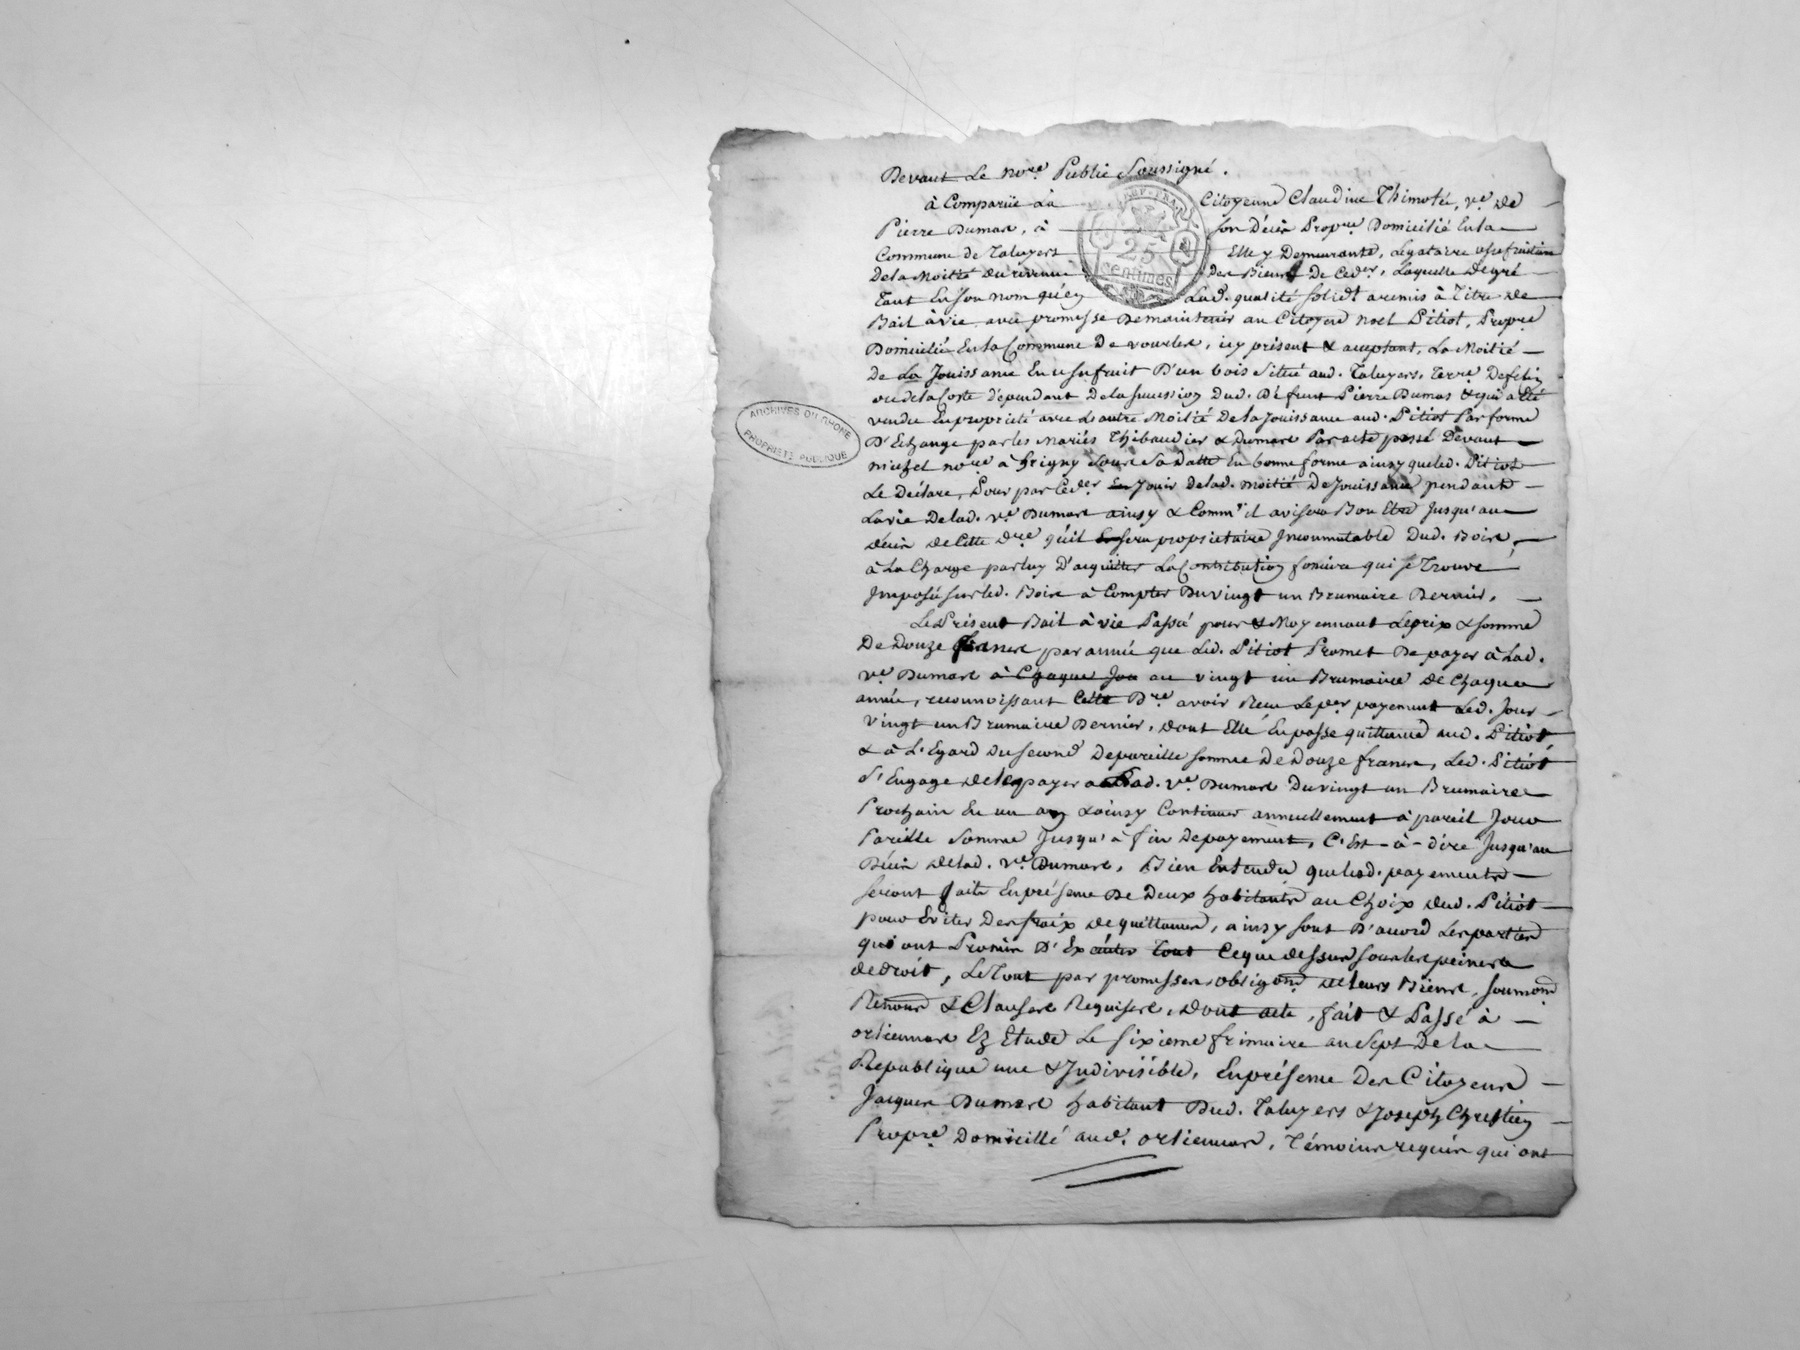 Devant Le no.re Public Soussigné.
à Comparüe La Citoyenne Claudine Thimoté, v.e de
Pierre Dumas, à son Décès Prop.re Domicilié En la
Commune de Taluyers Elle y Demeurante, Legataire usufruitiere
De la Moitié du revenu Des Biens De Ced.er, Laquelle De gré
Tant En son nom qu'en Lad. qualité solid.t a remis à Titre de
Bail à Vie avec promesse De maintenir au Citoyen noel Pitiot, Prop.re
Domicilié En la Commune De vourles, icy présent & acceptant, La Moitié
De La Jouissance En usufruit D'un bois Situé aud. Taluyers, Terre De
ou de la Coste dépendant De la succession Dud. Défunt Pierre Dumas & qui a été
vendu En propriété avec L'autre Moitié De la Jouissance aud. Pitiot Par forme
D'Echange par les Mariés Thibaudier & Dumas Par acte passé Devant
michel no.re à Grigny Sous Sa Datte En bonne forme ainsy que led. Pitiot
Le Déclare, Pour par Ced.er En Jouir De lad. moitié De Jouissance pendant
La vie De lad. v.e Dumas ainsy & Comm'il avisera Bon Etre Jusqu'au
décès de Cette D.re qu'il sera propriétaire Incommutable Dud. Bois,
à La Charge par luy D'acquitter La Contribution fonciere qui se Trouve
Imposée sur led. Bois à Compter Du vingt un Brumaire Dernier.
Le Présent Bail à vie Passé pour & Moyennant Le prix & somme
De Douze francs par année que Led. Pitiot Promet De payer à Lad.
v.e Dumas à Chaque Jou au vingt un Brumaire de Chaque
année, reconnoissant Cette D.re avoir Recu Le p.er payement Led. Jour
vingt un Brumaire Dernier, dont Elle En passe quittance aud. Pitiot,
& à L'Egard du second De pareille somme De Douze francs, Led. Pitiot
S'Engage de le payer a Lad. V.e Dumas Du vingt un Brumaire
Prochain En un an & ainsy Continuer annuellement à pareil Jour
Pareille Somme Jusqu'à fin De payement, C'Est-à-dire Jusqu'au
Décès de lad. v.e Dumas, Bien Entendu que lesd. payements
seront faits En présence De Deux habitants au Choix dud. Pitiot
pour Eviter Des fraix de quittance, ainsy sont D'accord Les parties
qui ont Promis D'Executer Tout Ce que dessus sous les peines
de droit, Le Tout par promesses oblig.ons de leurs Biens, soumon.s
Renons & Clauses Requises, dont acte, fait & Passé à
orliennas Ez Etude Le sixieme frimaire an Sept De la
Republique une & Indivisible, En présence Des Citoyens
Jacques Dumas habitant Dud. Taluyers & Joseph Chrestien
Prop.re Domicillé aud. orliennas, Témoins requis qui ont
REP. FRA.
25
centimes
ARCHIVES DU RHONE
PROPRIETE PUBLIQUE